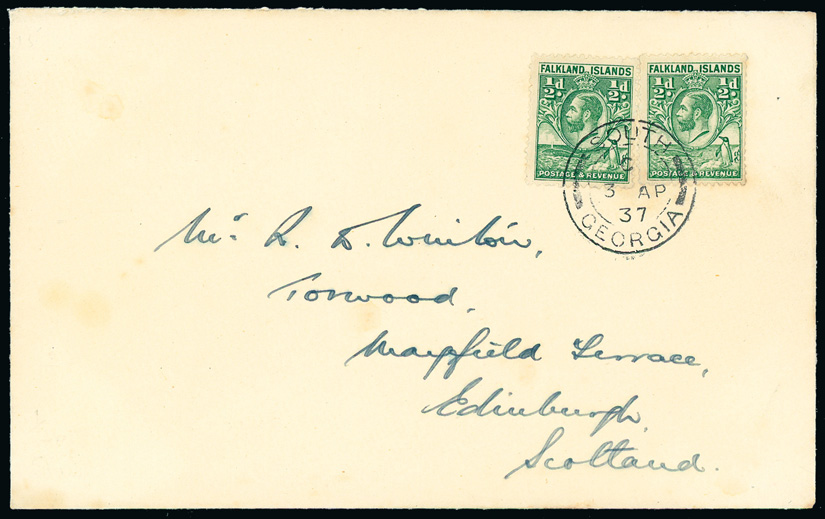 FALKLAND ISLANDS
½d. ½d.
POSTAGE & REVENUE
FALKLAND ISLANDS
½d. ½d.
POSTAGE & REVENUE
SOUTH
C
3 AP
37
GEORGIA
Mr. R. D.
Torwood,
Mayfield Terrace,
Edinburgh,
Scotland.